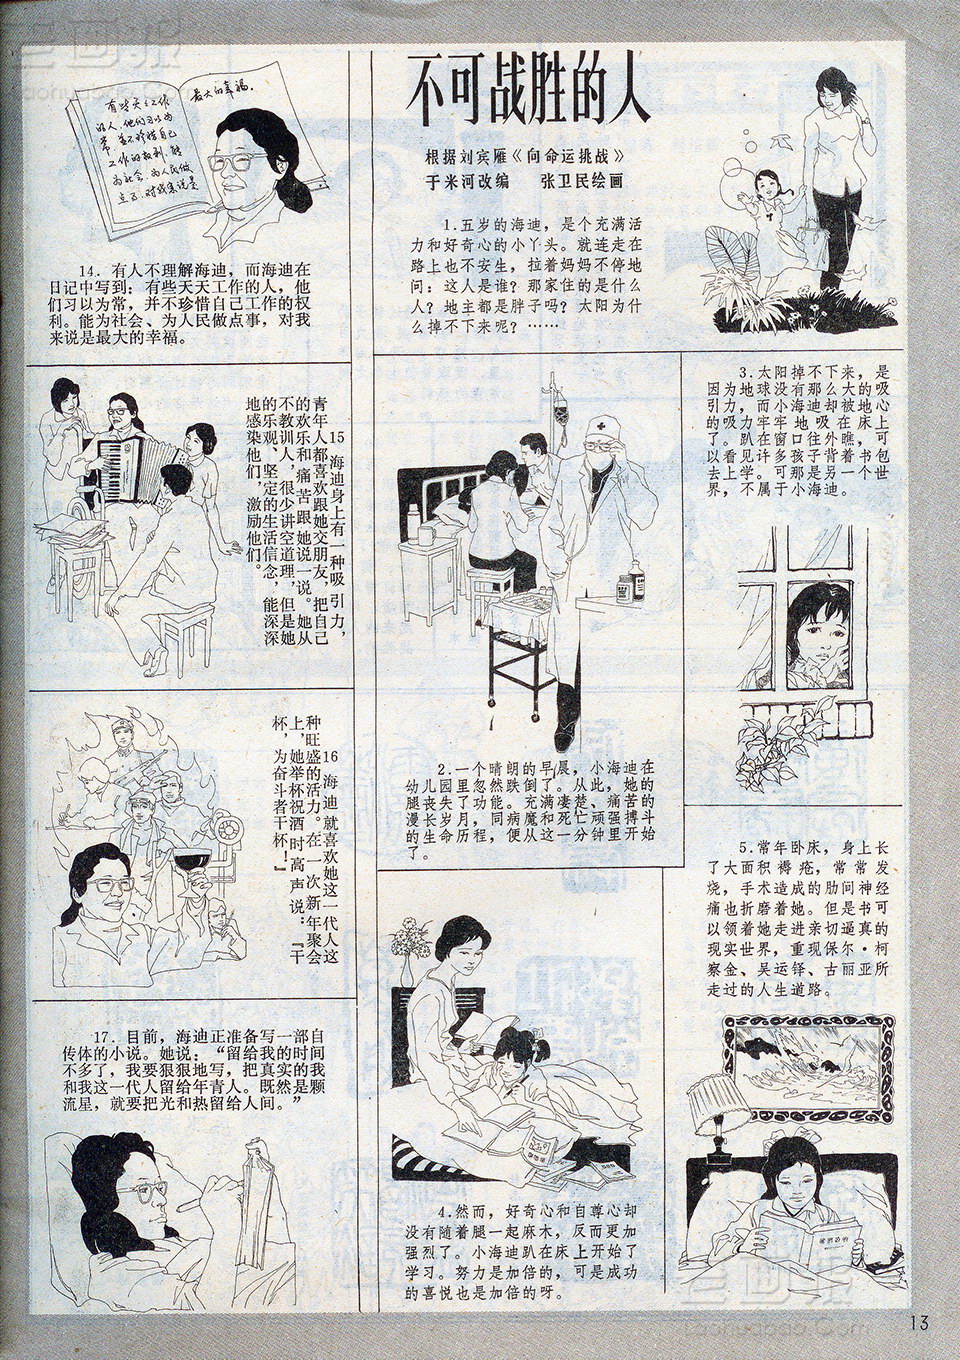 不可战胜的人
根据刘宾雁《向命运挑战》
于米河改编　张卫民绘画
1.五岁的海迪，是个充满活
力和好奇心的小丫头。就连走在
路上也不安生，拉着妈妈不停地
问：这人是谁？那家住的是什么
人？地主都是胖子吗？太阳为什
么掉不下来呢？……
2.一个晴朗的早晨，小海迪在
幼儿园里忽然跌倒了。从此，她的
腿丧失了功能。充满凄楚、痛苦的
漫长岁月，同病魔和死亡顽强搏斗
的生命历程，便从这一分钟里开始
了。
3.太阳掉不下来，是
因为地球没有那么大的吸
引力，而小海迪却被地心
的吸力牢牢地吸在床上
了。趴在窗口往外瞧，可
以看见许多孩子背着书包
去上学。可那是另一个世
界，不属于小海迪。
4.然而，好奇心和自尊心却
没有随着腿一起麻木，反而更加
强烈了。小海迪趴在床上开始了
学习。努力是加倍的，可是成功
的喜悦也是加倍的呀。
5.常年卧床，身上长
了大面积褥疮，常常发
烧，手术造成的肋间神经
痛也折磨着她。但是书可
以领着她走进亲切逼真的
现实世界，重现保尔·柯
察金、吴运铎、古丽亚所
走过的人生道路。
有些天天工作
的人，他们习以为
常，并不珍惜自己
工作的权利。能
为社会、为人民做
点事，对我来说是
最大的幸福。
14．有人不理解海迪，而海迪在
日记中写到：有些天天工作的人，他
们习以为常，并不珍惜自己工作的权
利。能为社会、为人民做点事，对我
来说是最大的幸福。
15　海迪身上有一种吸引力，
青年人都喜欢跟她交朋友，把自己
的欢乐和痛苦跟她说一说。她从
不教训人，很少讲空道理，但是她
的乐观、坚定的生活信念，能深深
地感染他们，激励他们。
16　海迪就喜欢她这一代人这
种旺盛的活力。在一次新年聚会
上，她举杯祝酒时高声说：“干
杯，为奋斗者干杯！”
17．目前，海迪正准备写一部自
传体的小说。她说：“留给我的时间
不多了，我要狠狠地写，把真实的我
和我这一代人留给年青人。既然是颗
流星，就要把光和热留给人间。”
13